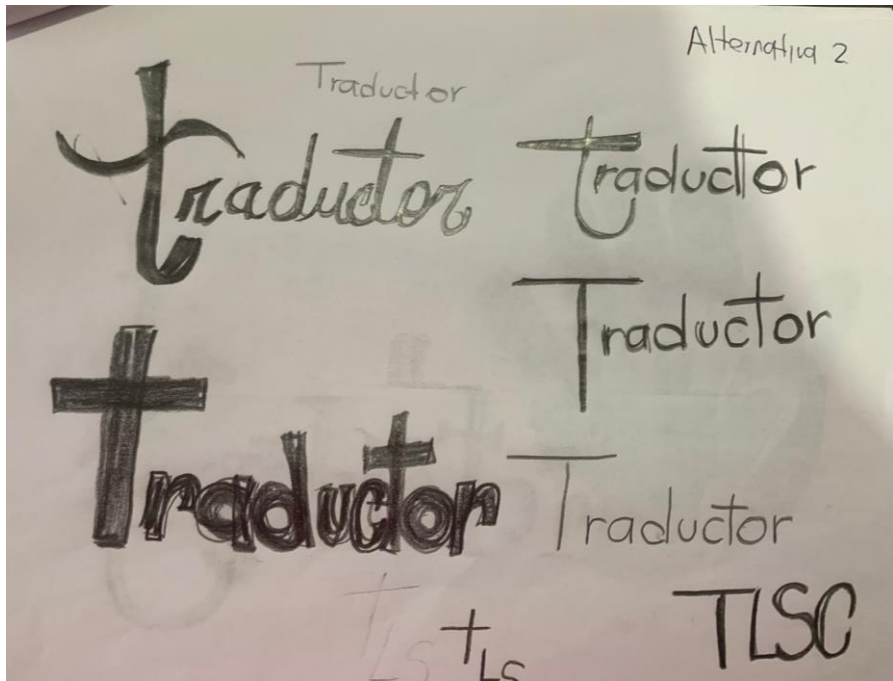 Alternativa 2
Traductor
traductor
traductor
Traductor
traductor
Traductor
TLS
tLS
TLSC